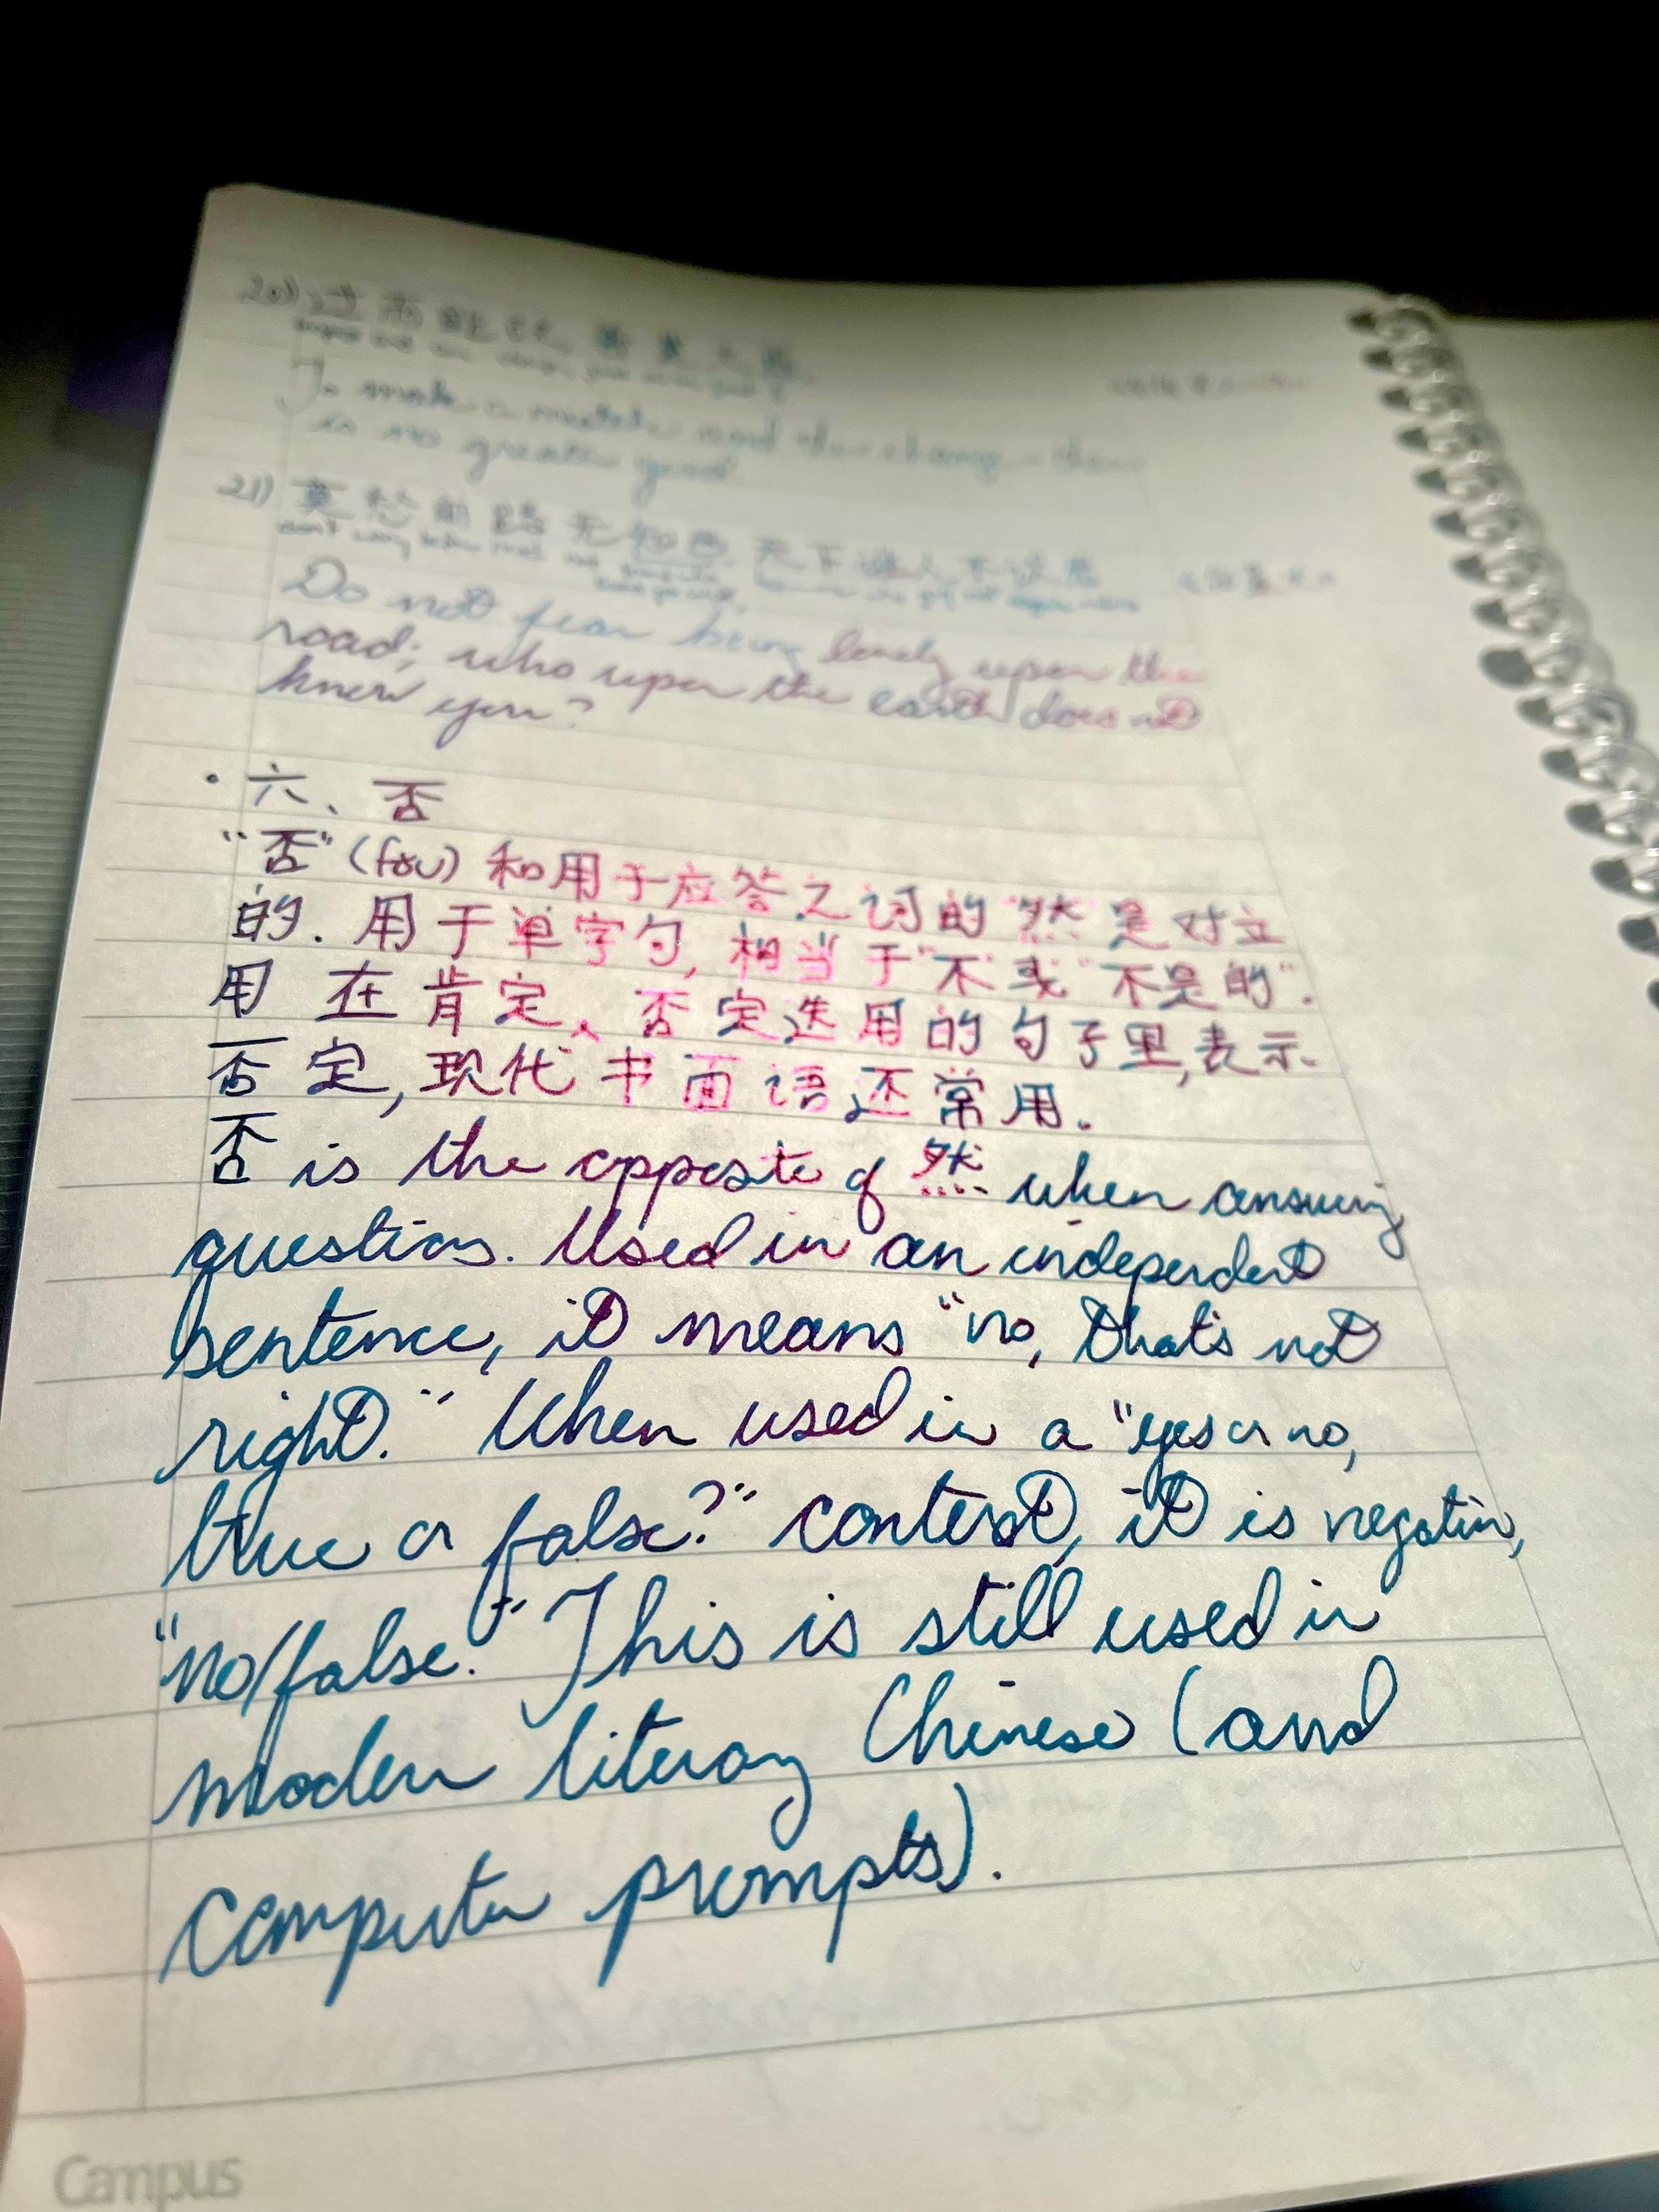 20) 过而能改,善莫大焉.
To make a mistake and then change - there
is no greater good.
21) 莫愁前路无知己,天下谁人不识君
Do not fear being lonely upon the
road; who upon the earth does not
know you?
· 六、否
"否" (fǒu) 和用于应答之词的"然"是对立
的. 用于单字句, 相当于"不"或"不是的".
用在肯定、否定迭用的句子里, 表示
否定, 现代书面语还常用.
否 is the opposite of 然 when answering
questions. Used in an independent
sentence, it means "no, that's not
right." When used in a "yes or no,
true or false?" context, it is negative,
"no/false." This is still used in
modern literary Chinese (and
computer prompts).
Campus